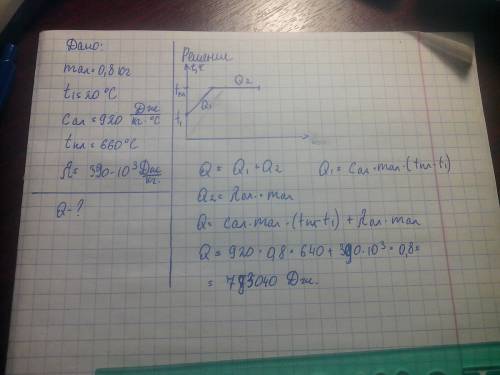 Дано:
mал = 0,8 кг
t₁ = 20 °C
Cал = 920 Дж/кг·°C
tпл = 660 °C
λ = 390·10³ Дж/кг.
Q - ?
Решение
t, °C
tпл
Q₂
Q₁
t₁
Q = Q₁ + Q₂ Q₁ = Cал · mал · (tпл - t₁)
Q₂ = λал · mал
Q = Cал · mал · (tпл - t₁) + λал · mал
Q = 920 · 0,8 · 640 + 390·10³ · 0,8 =
= 783040 Дж.